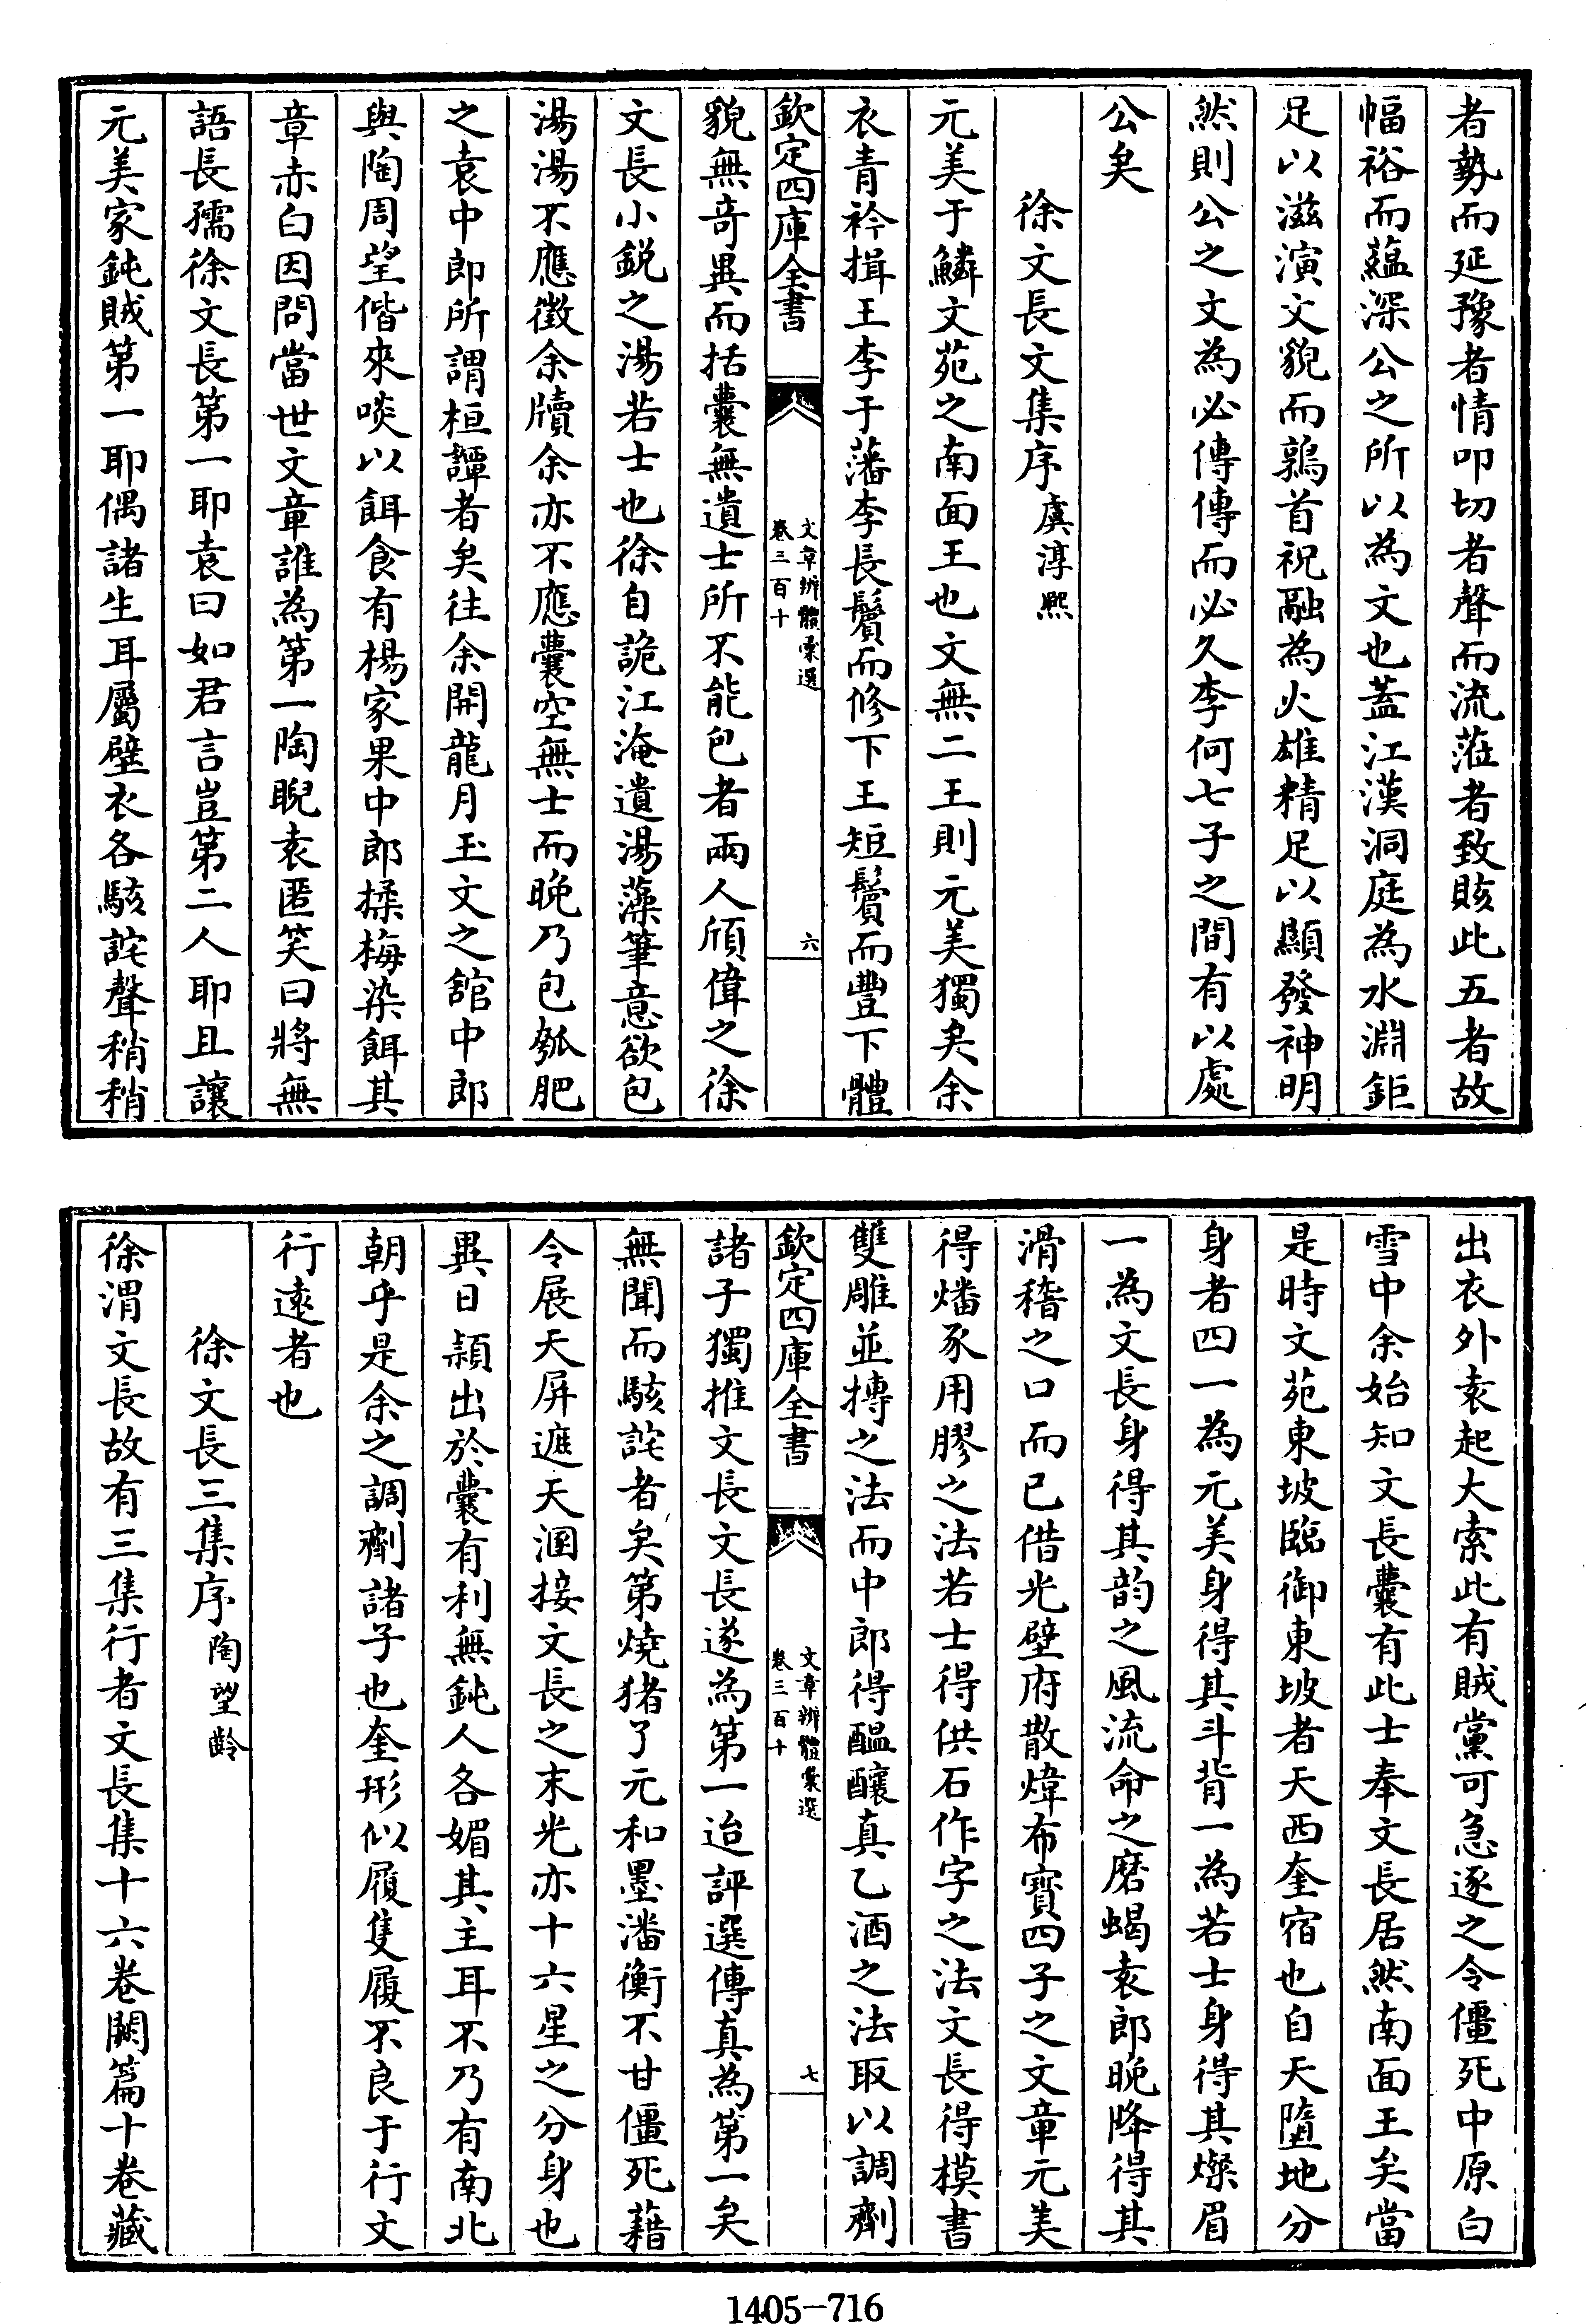 者勢而延豫者情叩切者聲而流蒞者致賅此五者故
幅裕而蘊深公之所以為文也蓋江漢洞庭為水淵鉅
足以滋演文貌而鶉首祝融為火雄精足以顯發神明
然則公之文為必傳傳而必久李何七子之間有以處
公矣
徐文長文集序虞淳熙
元美于鱗文苑之南面王也文無二王則元美獨矣余
衣青衿揖王李于藩李長鬢而修下王短鬢而豐下體
欽定四庫全書
文章辨體彙選
卷三百十
六
貌無奇異而括囊無遺士所不能包者兩人頎偉之徐
文長小銳之湯若士也徐自詭江淹遺湯藻筆意欲包
湯湯不應徵余牘余亦不應囊空無士而晚乃包瓠肥
之袁中郎所謂桓譚者矣往余開龍月玉文之舘中郎
與陶周望偕來啖以餌食有楊家果中郎揉梅染餌其
章赤白因問當世文章誰為第一陶睨袁匿笑曰將無
語長孺徐文長第一耶袁曰如君言豈第二人耶且讓
元美家鈍賊第一耶偶諸生耳屬壁衣各駭詫聲稍稍
出衣外袁起大索此有賊黨可急逐之令僵死中原白
雪中余始知文長囊有此士奉文長居然南面王矣當
是時文苑東坡臨御東坡者天西奎宿也自天墮地分
身者四一為元美身得其斗背一為若士身得其燦眉
一為文長身得其韵之風流命之磨蝎袁郎晚降得其
滑稽之口而已借光壁府散煒布寶四子之文章元美
得燔豕用膠之法若士得供石作字之法文長得模書
雙雕並摶之法而中郎得醞釀真乙酒之法取以調劑
欽定四庫全書
文章辨體彙選
卷三百十
七
諸子獨推文長文長遂為第一迨評選傳真為第一矣
無聞而駭詫者矣第燒猪了元和墨潘衡不甘僵死藉
令展天屏遮天溷接文長之末光亦十六星之分身也
異日頴出於囊有利無鈍人各媚其主耳不乃有南北
朝乎是余之調劑諸子也奎形似履隻履不良于行文
行遠者也
徐文長三集序陶望齡
徐渭文長故有三集行者文長集十六卷闕篇十卷藏
1405-716